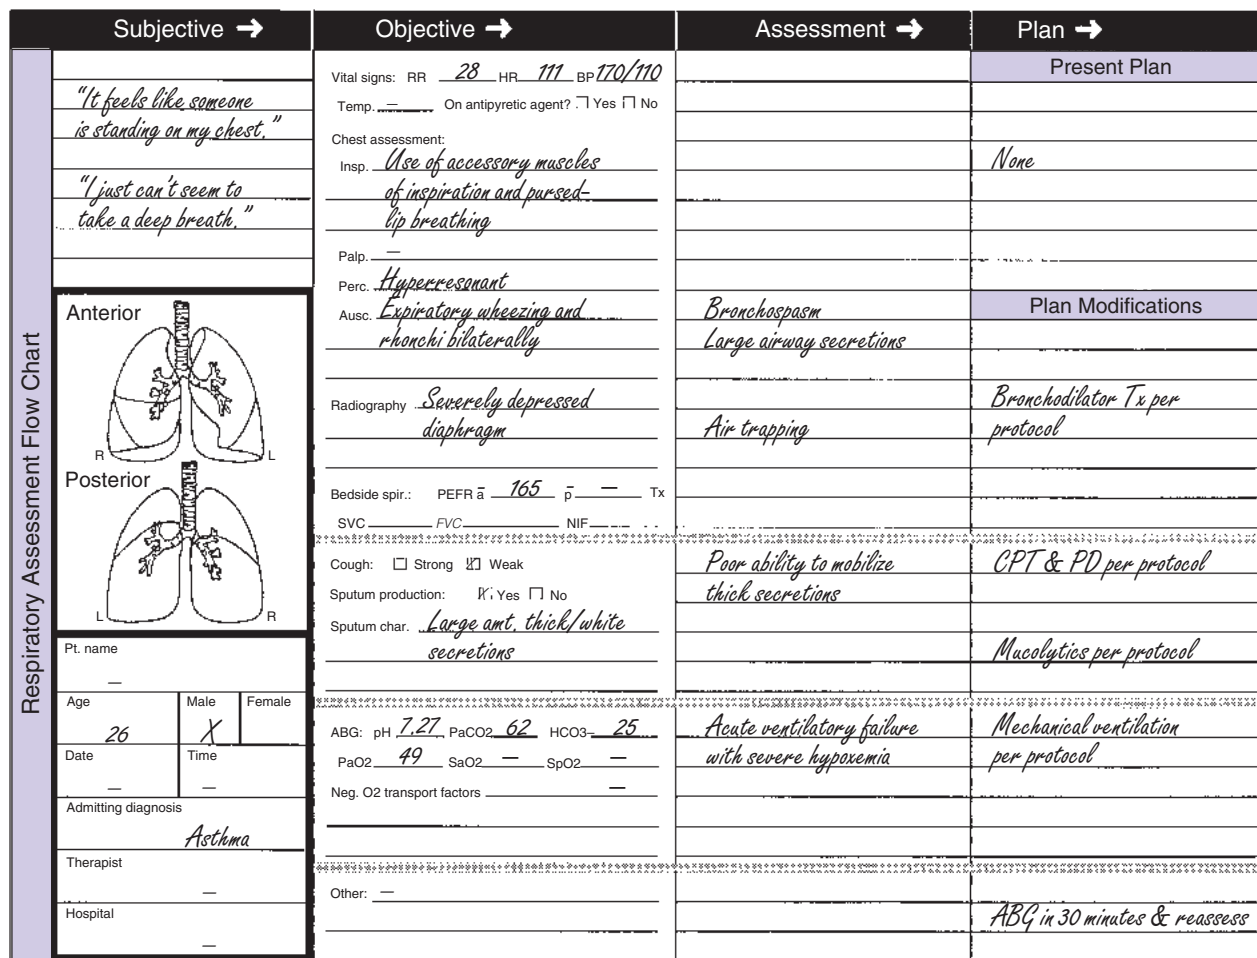 Subjective → Objective → Assessment → Plan →
Respiratory Assessment Flow Chart
"It feels like someone
is standing on my chest."
"I just can't seem to
take a deep breath."
Anterior
R L
Posterior
L R
Pt. name
–
Age Male Female
26 X
Date Time
– –
Admitting diagnosis
Asthma
Therapist
–
Hospital
–
Vital signs: RR 28 HR 111 BP 170/110
Temp. – On antipyretic agent? Yes No
Chest assessment:
Insp. Use of accessory muscles
of inspiration and pursed-
lip breathing
Palp. –
Perc. Hyperresonant
Ausc. Expiratory wheezing and
rhonchi bilaterally
Radiography Severely depressed
diaphragm
Bedside spir.: PEFR a̅ 165 p̅ – Tx
SVC FVC NIF
Cough: Strong Weak
Sputum production: Yes No
Sputum char. Large amt. thick/white
secretions
ABG: pH 7.27 PaCO2 62 HCO3– 25
PaO2 49 SaO2 – SpO2 –
Neg. O2 transport factors –
Other: –
Bronchospasm
Large airway secretions
Air trapping
Poor ability to mobilize
thick secretions
Acute ventilatory failure
with severe hypoxemia
Present Plan
None
Plan Modifications
Bronchodilator Tx per
protocol
CPT & PD per protocol
Mucolytics per protocol
Mechanical ventilation
per protocol
ABG in 30 minutes & reassess